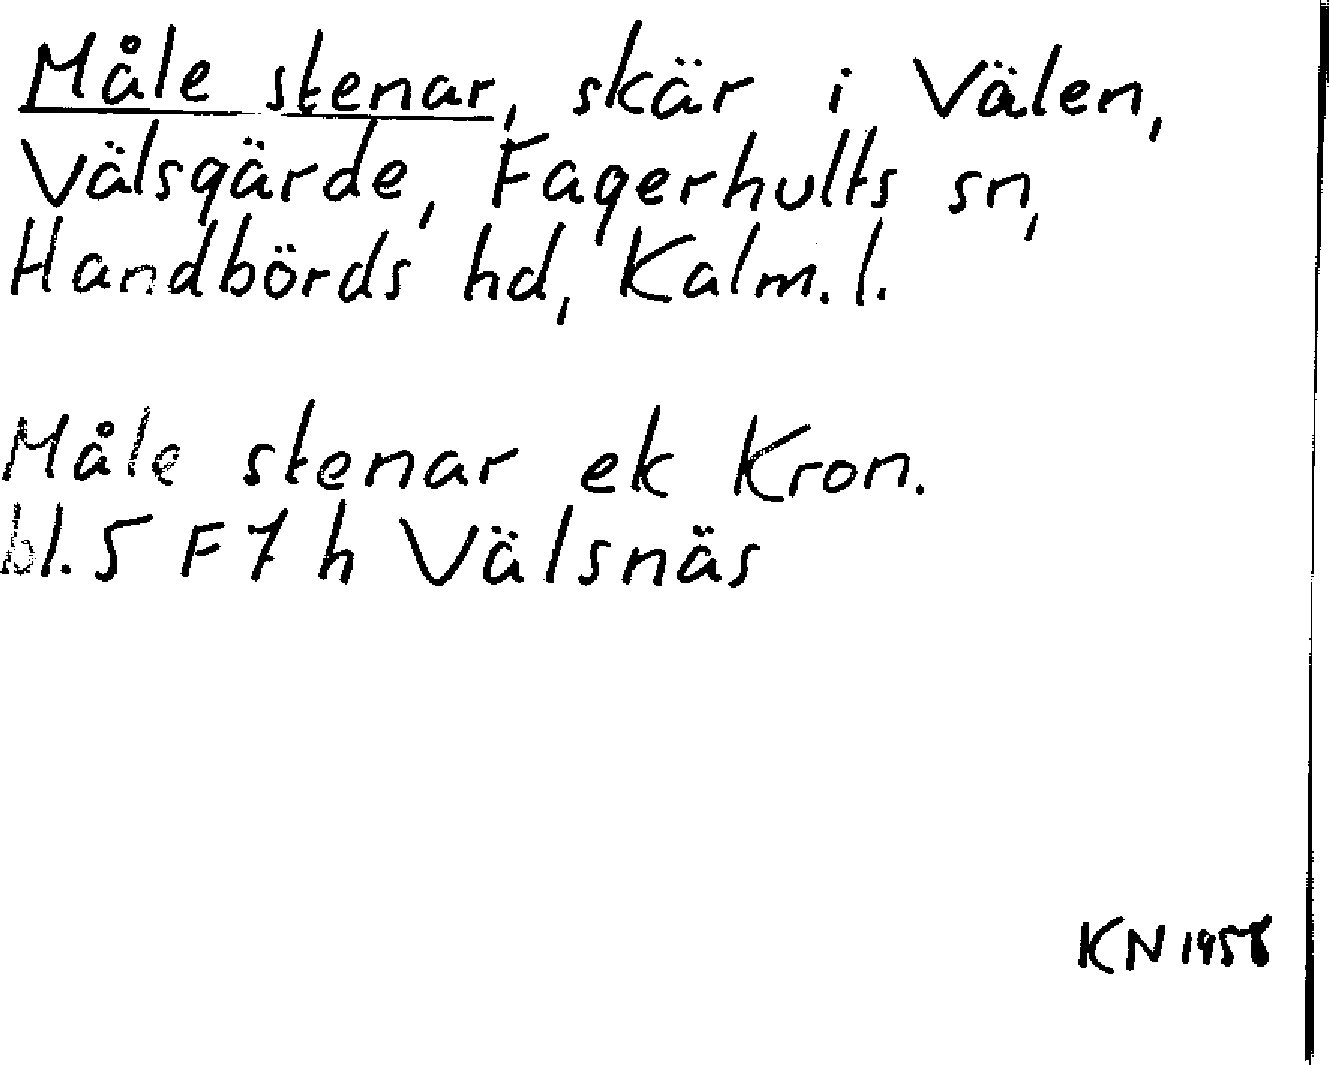 Måle stenar, skär i Välen,
Välsgärde, Fagerhults sn,
Handbörds hd, Kalm. l.
Måle stenar ek Kron.
bl. 5 F 7 h Välsnäs
KN 1958